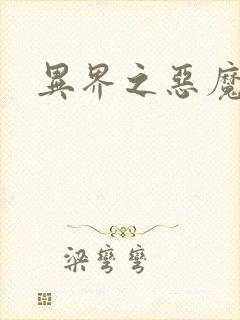 異界之惡魔
梁彎彎